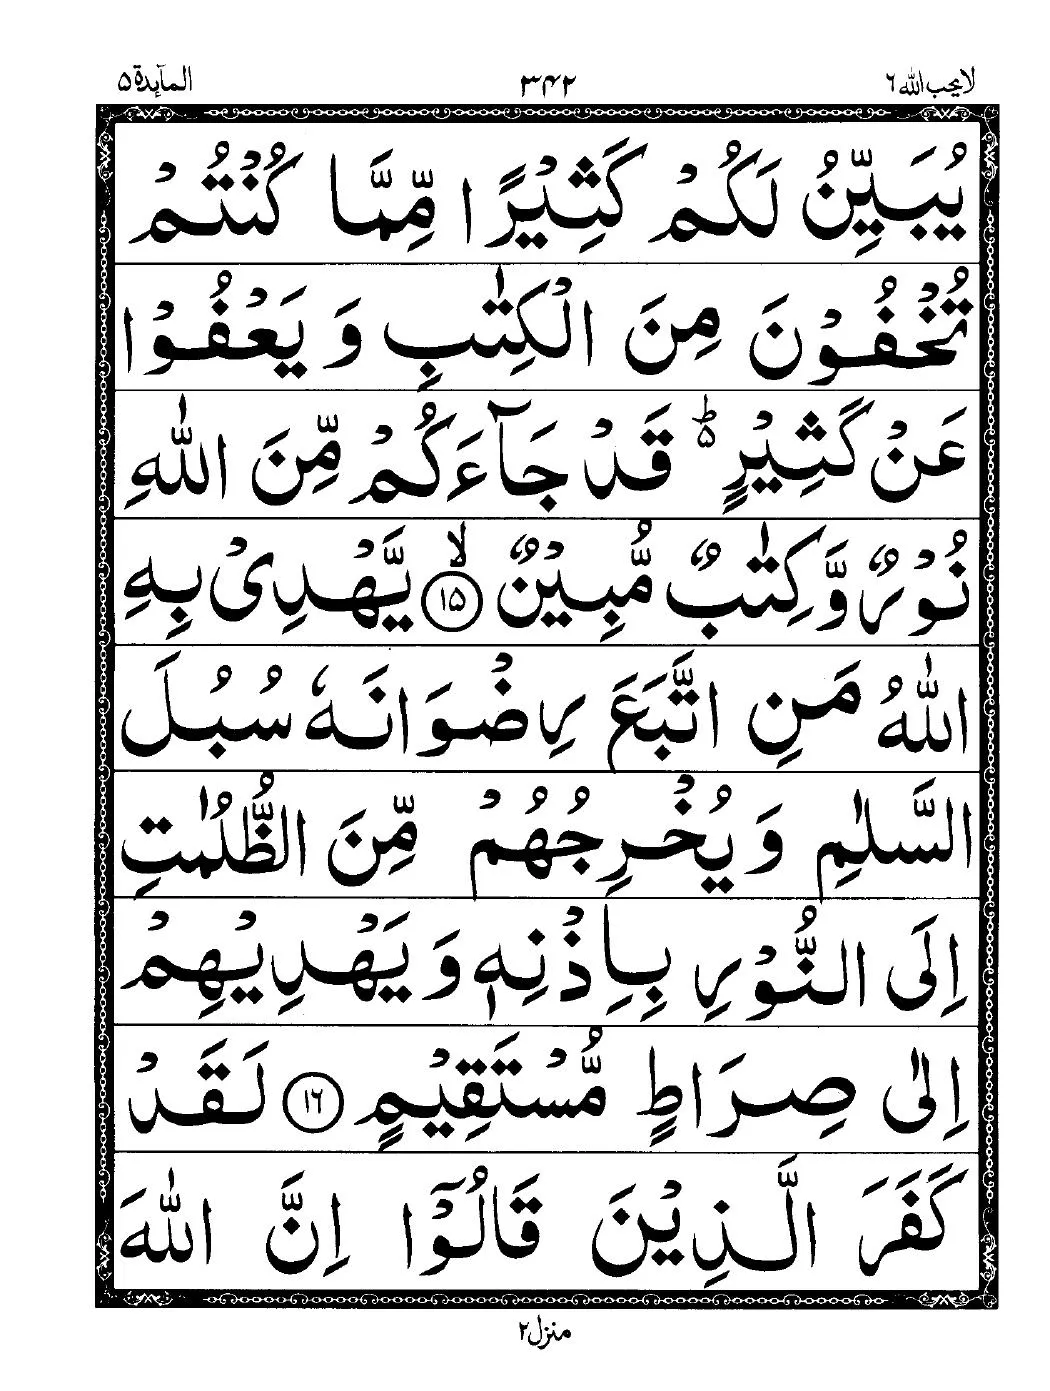 لا يحب الله ٦ ٣٤٢ المآىٕدة ٥
يُبَيِّنُ لَكُمْ كَثِيْرًا مِّمَّا كُنْتُمْ
تُخْفُوْنَ مِنَ الْكِتٰبِ وَ يَعْفُوْا
عَنْ كَثِيْرٍ ؕ۬ قَدْ جَآءَكُمْ مِّنَ اللّٰهِ
نُوْرٌ وَّ كِتٰبٌ مُّبِيْنٌ ۙ﴿۱۵﴾ يَّهْدِيْ بِهِ
اللّٰهُ مَنِ اتَّبَعَ رِضْوَانَهٗ سُبُلَ
السَّلٰمِ وَ يُخْرِجُهُمْ مِّنَ الظُّلُمٰتِ
اِلَى النُّوْرِ بِاِذْنِهٖ وَ يَهْدِيْهِمْ
اِلٰى صِرَاطٍ مُّسْتَقِيْمٍ ﴿۱۶﴾ لَقَدْ
كَفَرَ الَّذِيْنَ قَالُوْۤا اِنَّ اللّٰهَ
منزل ٢